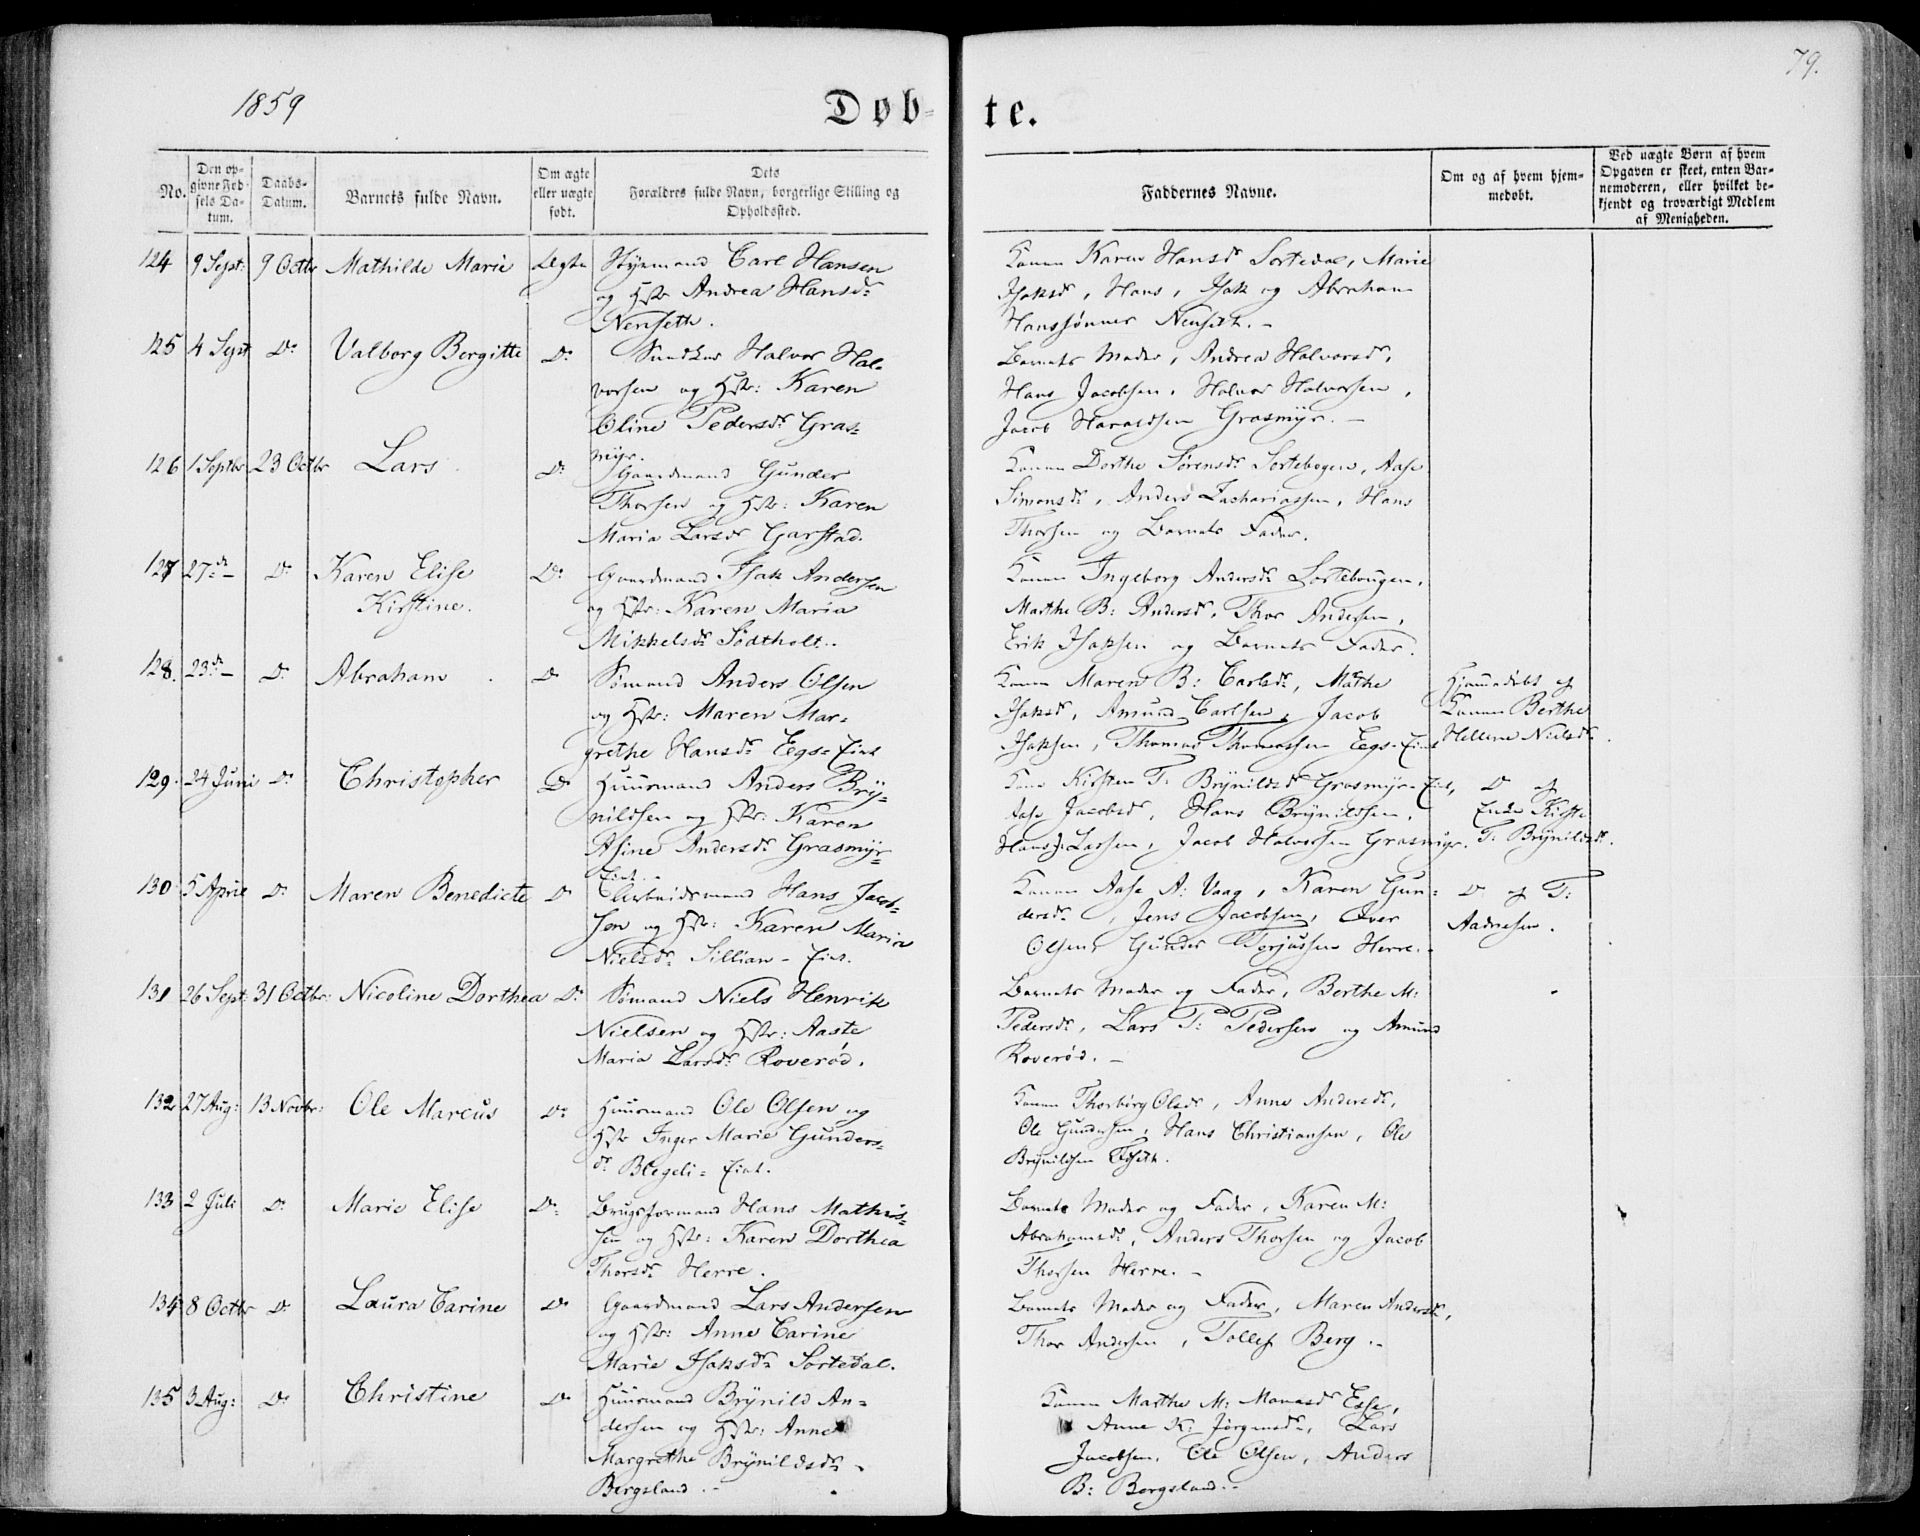 79.
1859
Døb-te.
No.
Den op-
givne Fød-
sels Da-
tum.
Daabs-
Datum.
Barnets fulde Navn.
Om ægte
eller uægte
født.
Dets
Forældres fulde Navn, borgerlige Stilling og
Opholdssted.
Faddernes Navne.
Om og af hvem hjem-
medøbt.
Ved uægte Børn af hvem
Opgaven er skeet, enten Bar-
nemoderen, eller hvilket be-
kjendt og troværdigt Medlem
af Menigheden.
124 9 Sept: 9 Octbr Mathilde Marie Ægte Carl Hansen
og Hstr Andrea Hansdr
Nenseth.
Konen Karen Hansdr Sortedal, Marie
Isaksdr, Hans, Isak og Abraham
Hanssønner Nenseth. -
125 4 Sept Do Valborg Bergitte Do Halvor Hal-
vorsen og Hstr: Karen
Oline Pedersdr Gras-
myr.
Barnets Moder, Andrea Halvorsdr,
Hans Jacobsen, Halvor Halvorsen,
Jacob Haraldsen Grasmyr. -
126 1 Septbr 23 Octbr Lars Do Gaardmand Gunder
Thorsen og Hstr: Karen
Maria Larsdr Garstad.
Konen Dorthe Sørensdr Sortebogen, Aase
Simonsdr, Anders Zachariassen, Hans
Thorsen og Barnets Fader.
127 27de - Do Karen Elise
Kirstine.
Do Gaardmand Isak Andersen
og Hstr: Karen Maria
Mikkelsdr Sødtholt.
Konen Ingeborg Andersdr Sortebougen,
Marthe B: Andersdr, Thor Andersen,
Erik Isaksen og Barnets Fader.
128. 23de - Do Abraham Do Sømand Anders Olsen
og Hstr: Maren Mar-
grethe Hansdr Eegs-Eiet
Konen Maren B: Carlsdr, Mathe
Isaksdr, Amund Carlsen, Jacob
Isaksen, Thomas Thomassen Eegs-Eiet
Hjemmedøbt af
Konen Berthe
Hellene Nielsdr.
129. 24 Juni Do Christopher Do Huusmand Anders Bry-
nildsen og Hstr: Karen
Asine Andersdr Grasmyr-
Eiet.
Kone Kirsten T. Brynildsdr Grasmyr-Eiet,
Aase Jacobsdr, Hans Brynildsen,
Hans J. Larsen, Jacob Halvorsen Grasmyr.
Do af
Enke Kirste
T. Brynildsdr.
130 5 April Do Maren Benedicte Do Arbeidsmand Hans Jacob-
sen og Hstr: Karen Maria
Nielsdr Sillian-Eiet.
Konen Aase A: Vaag, Karen Gun-
dersdr, Jens Jacobsen, Iver
Olsen, Gunder Torjussen Herre. -
Do af T:
Aadnesen.
131 26 Sept: 31 Octbr: Nicoline Dorthea Do Sømand Niels Henrik
Nielsen og Hstr: Aaste
Maria Larsdr Roverød.
Barnets Moder og Fader, Berthe M:
Pedersdr, Lars P: Pedersen og Amund
Roverød. -
132 27 Aug: 13 Novbr: Ole Marcus Do Huusmand Ole Olsen og
Hstr Inger Marie Gunders-
dr Blegeli-Eiet.
Konen Thorborg Olsdr, Anne Andersdr,
Ole Gundersen, Hans Christiansen, Ole
Brynildsen
133 2 Juli Do Marie Elise Do Brugsformand Hans Mathis-
sen og Hstr: Karen Dorthea
Thorsdr Herre.
Barnets Moder og Fader, Karen M:
Abrahamsdr, Anders Thorsen og Jacob
Thorsen Herre. -
134 8 Octbr Do Laura Carine Do Gaardmand Lars Andersen
og Hstr: Anne Carine
Marie Isaksdr Sortedal.
Barnets Moder og Fader, Maren Andersdr,
Thor Andersen, Tollef Berg. -
135 3 Aug: Do Christine Do Huusmand Brynild An-
dersen og Hstr: Anne
Margrethe Brynildsdr
Bergsland. -
Konen Marthe M: Monasdr
Anne K: Jørgensdr, Lars
Jacobsen, Ole Olsen, Anders
B: Bergsland. -